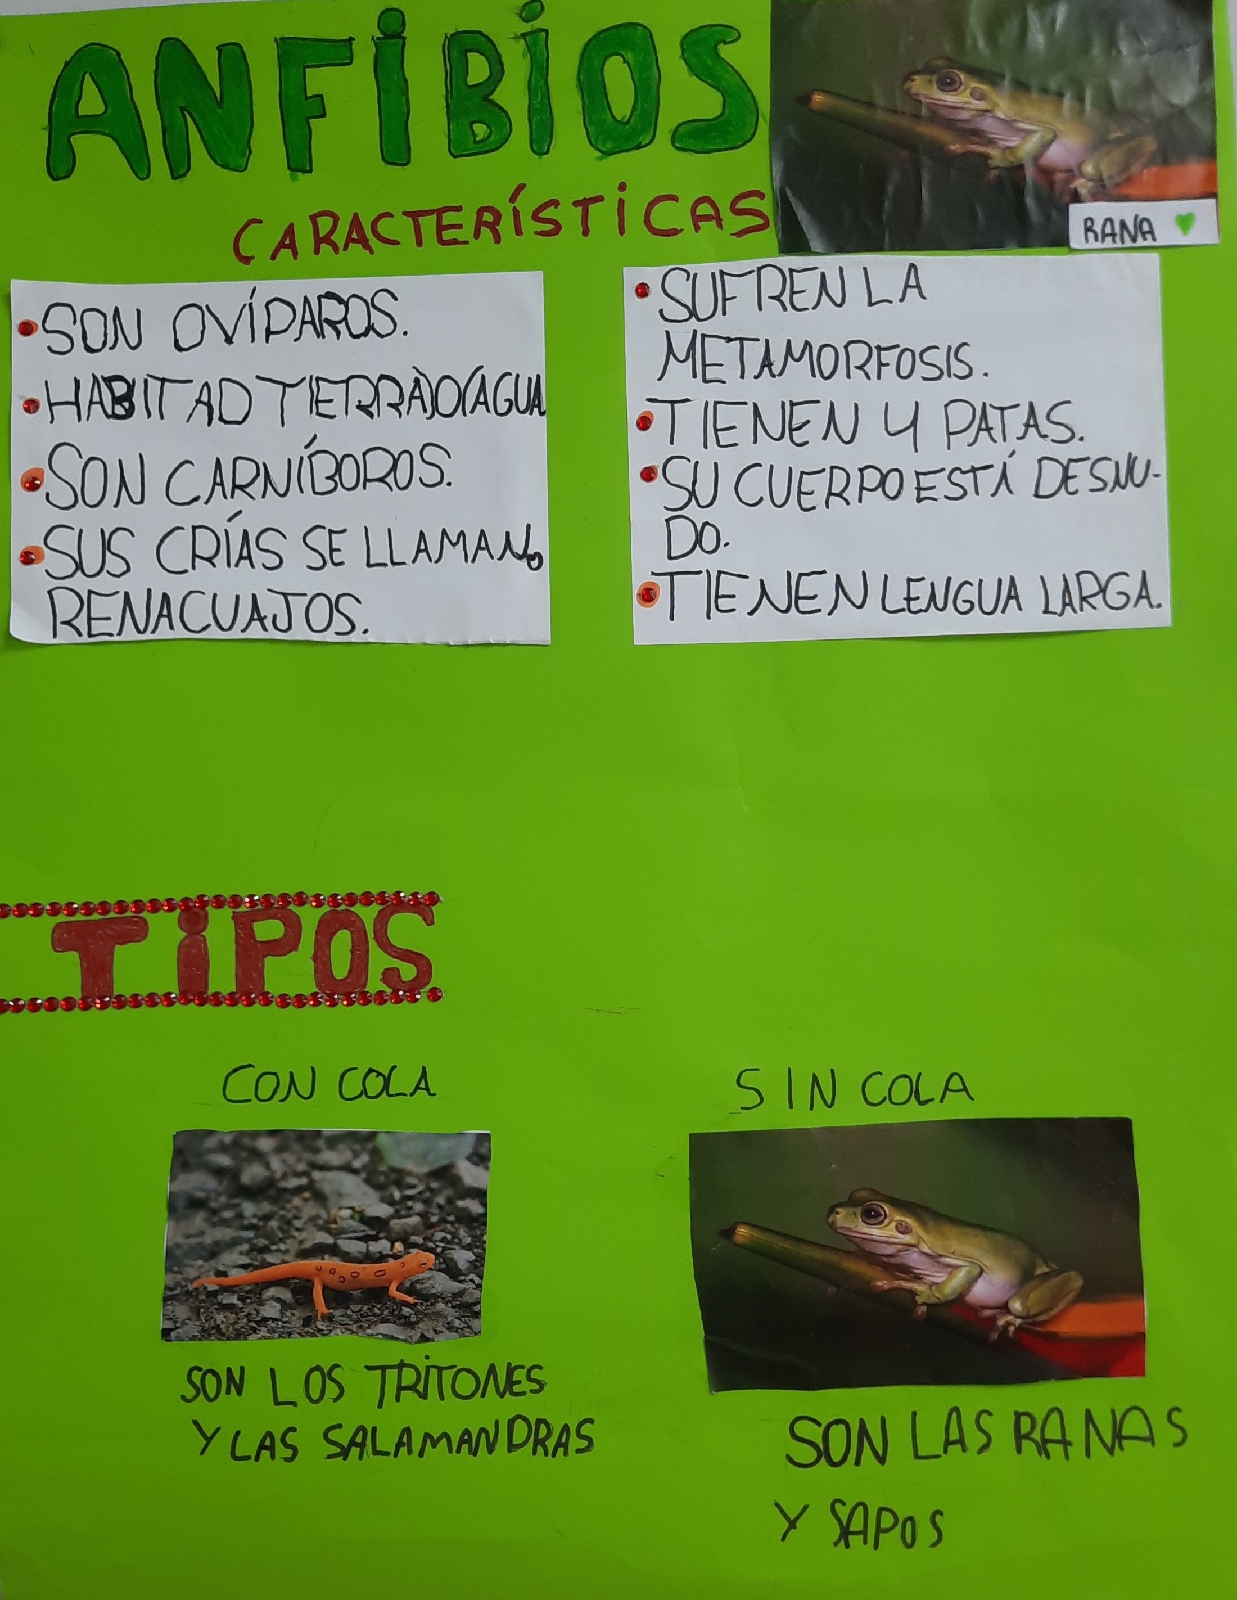 ANFIBIOS
CARACTERÍSTICAS
RANA
• SON OVÍPAROS.
• HABITAD TIERRA)O(AGUA
• SON CARNÍBOROS.
• SUS CRÍAS SE LLAMAN
RENACUAJOS.
• SUFREN LA
METAMORFOSIS.
• TIENEN 4 PATAS.
• SU CUERPO ESTÁ DESNU-
DO.
• TIENEN LENGUA LARGA.
TIPOS
CON COLA
SON LOS TRITONES
Y LAS SALAMANDRAS
SIN COLA
SON LAS RANAS
Y SAPOS